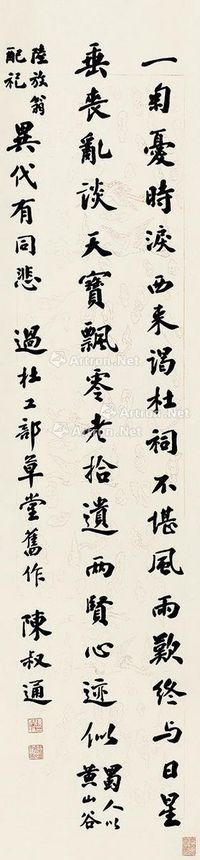 一匊憂時淚西来谒杜祠不堪風雨歎終与日星
垂喪亂談天寶飄零老拾遺两賢心迹似蜀人以黄山谷
陸放翁配祀異代有同悲 過杜工部草堂舊作 陳叔通